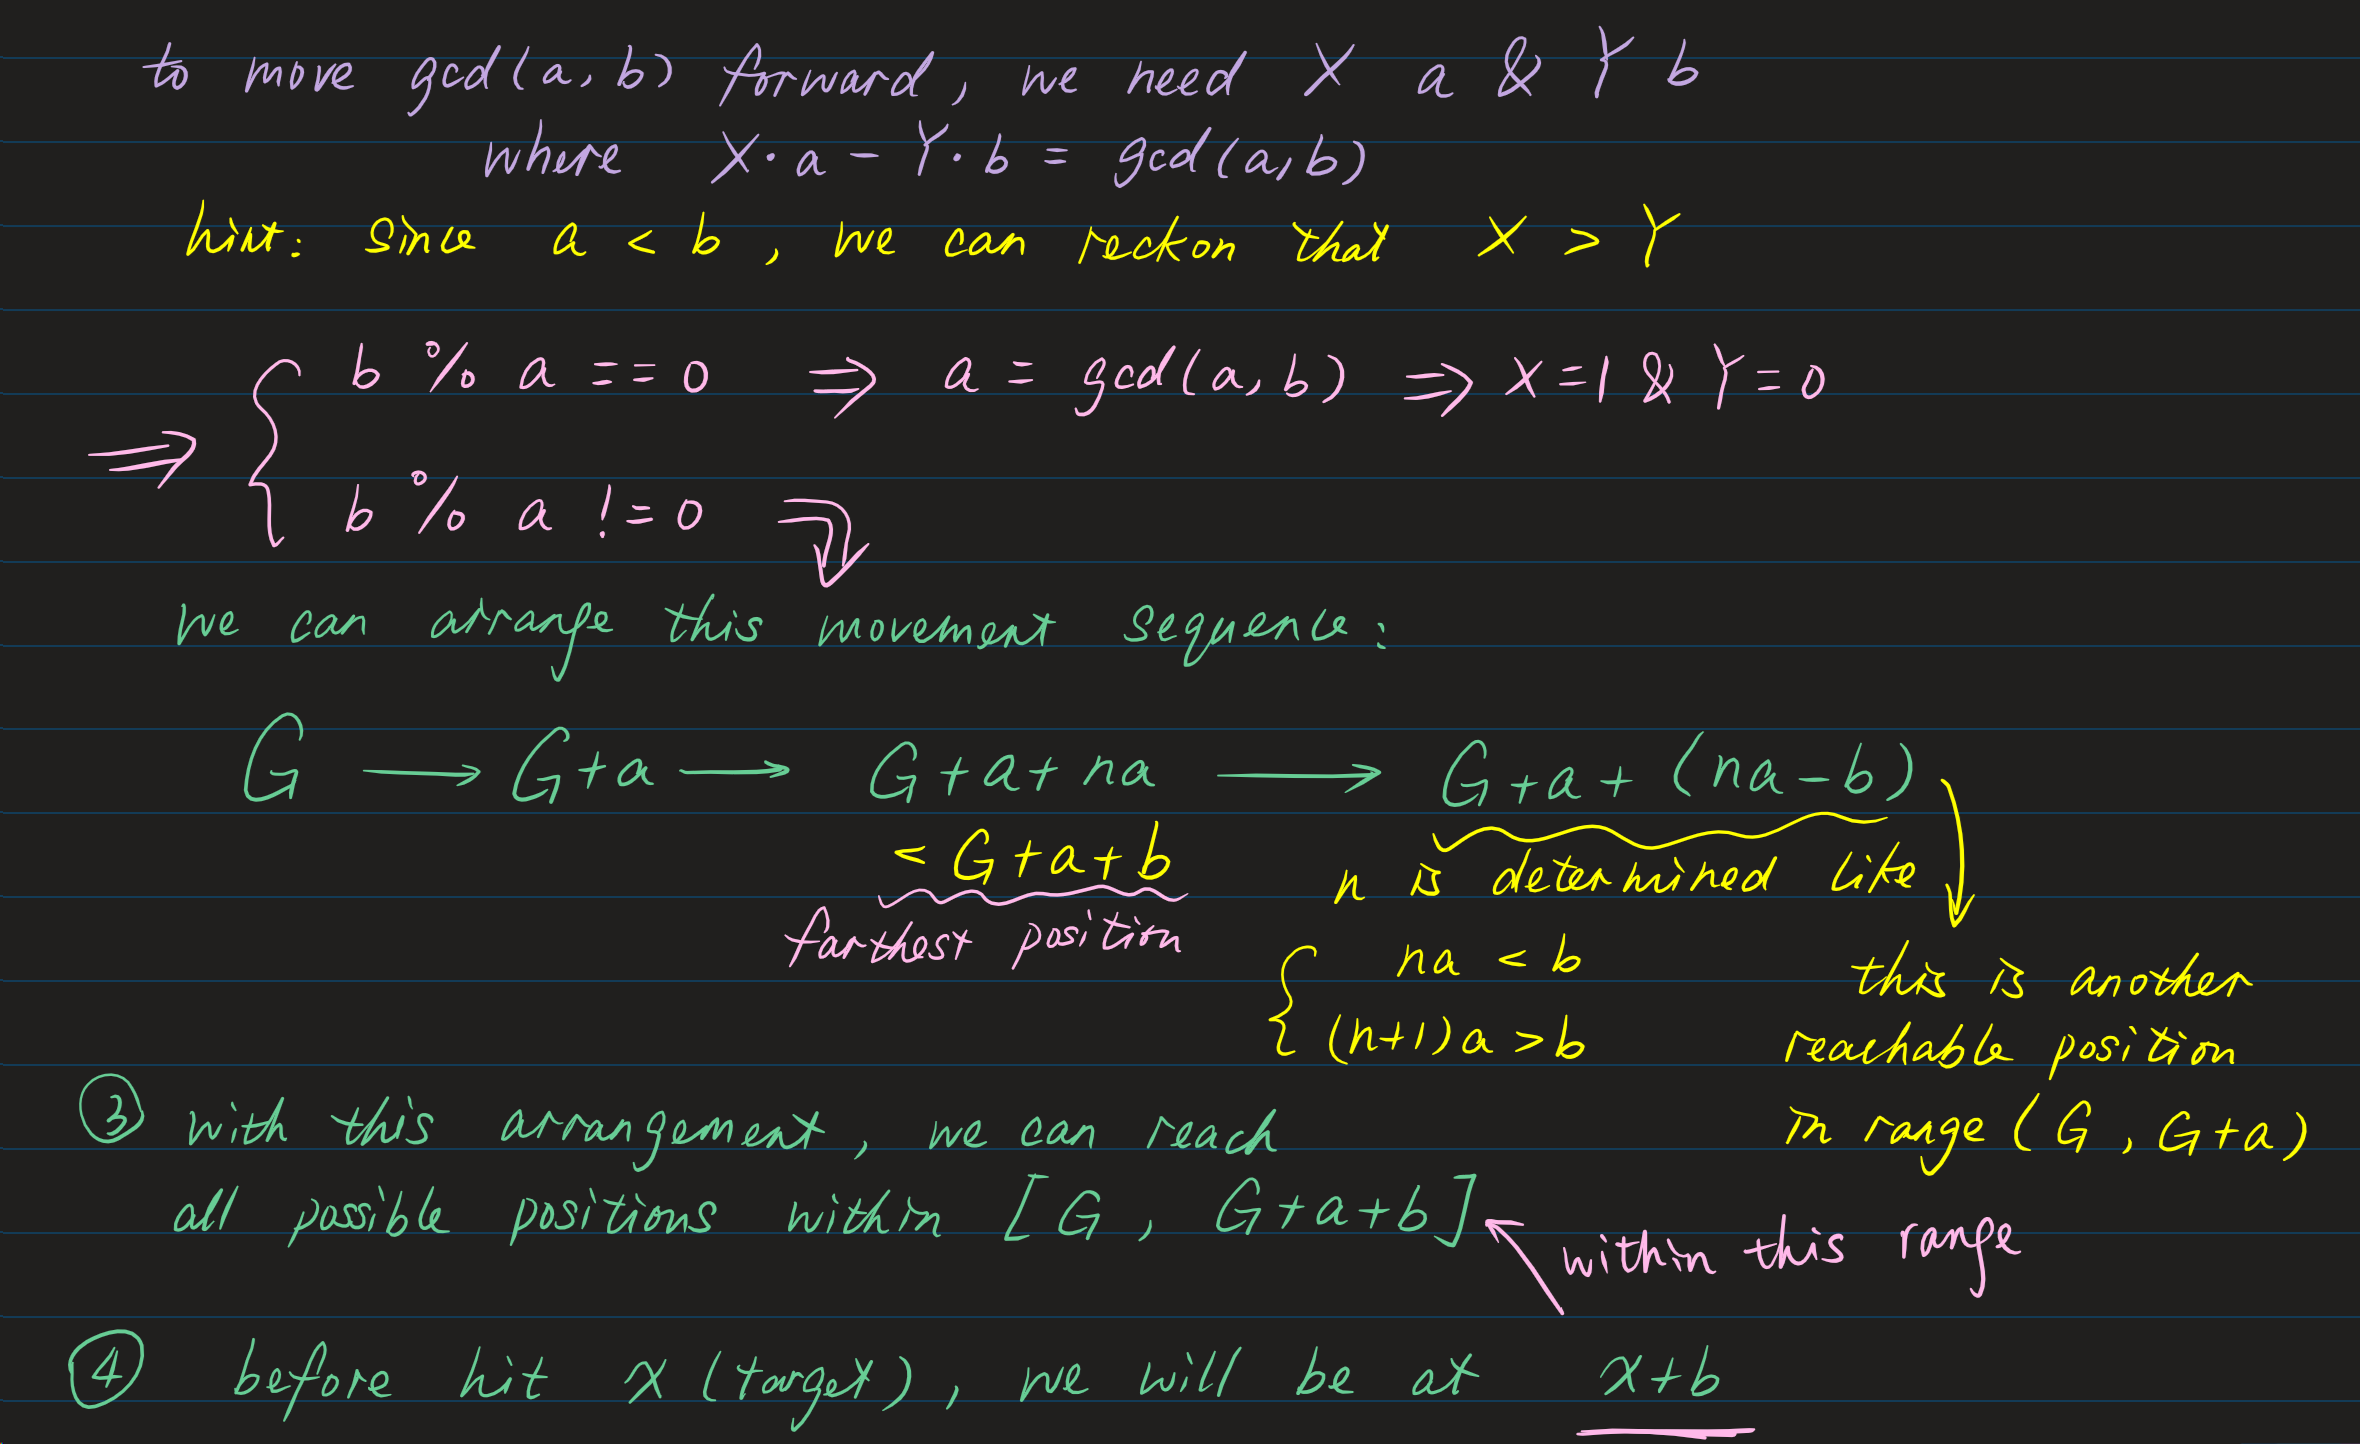 to move gcd(a,b) forward, we need X a & Y b
where X·a - Y·b = gcd(a,b)
hint: since a < b, we can reckon that X > Y
⇒ { b % a == 0 ⇒ a = gcd(a,b) ⇒ X=1 & Y=0
b % a != 0 ⇒
we can arrange this movement sequence:
G → G+a → G+a+na → G+a+(na-b)
< G+a+b
farthest position
n is determined like
{ na < b
(n+1)a > b
this is another
reachable position
in range (G, G+a)
③ with this arrangement, we can reach
all possible positions within [G, G+a+b]
within this range
④ before hit x (target), we will be at x+b